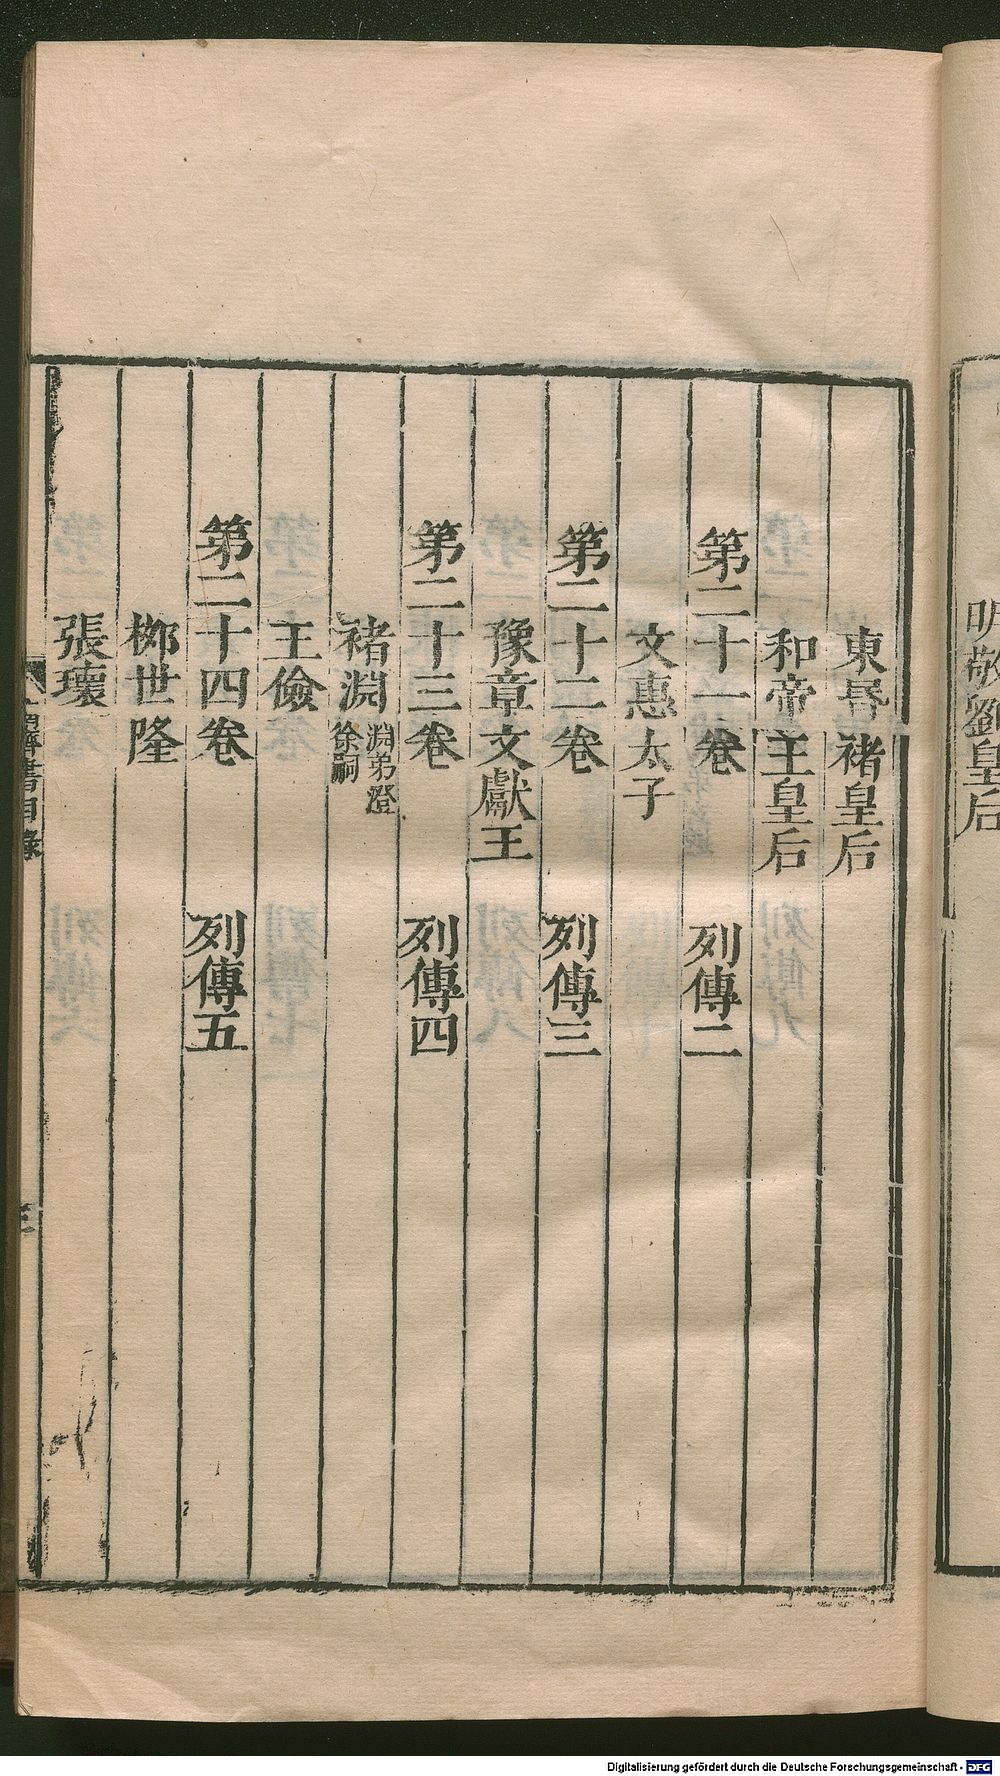 明敬劉皇后
東昏褚皇后
和帝王皇后
第二十一卷 列傳二
文惠太子
第二十二卷 列傳三
豫章文獻王
第二十三卷 列傳四
褚淵 淵弟澄 徐嗣
王儉
第二十四卷 列傳五
柳世隆
張瓌
南齊書目錄
三
Digitalisierung gefördert durch die Deutsche Forschungsgemeinschaft - DFG